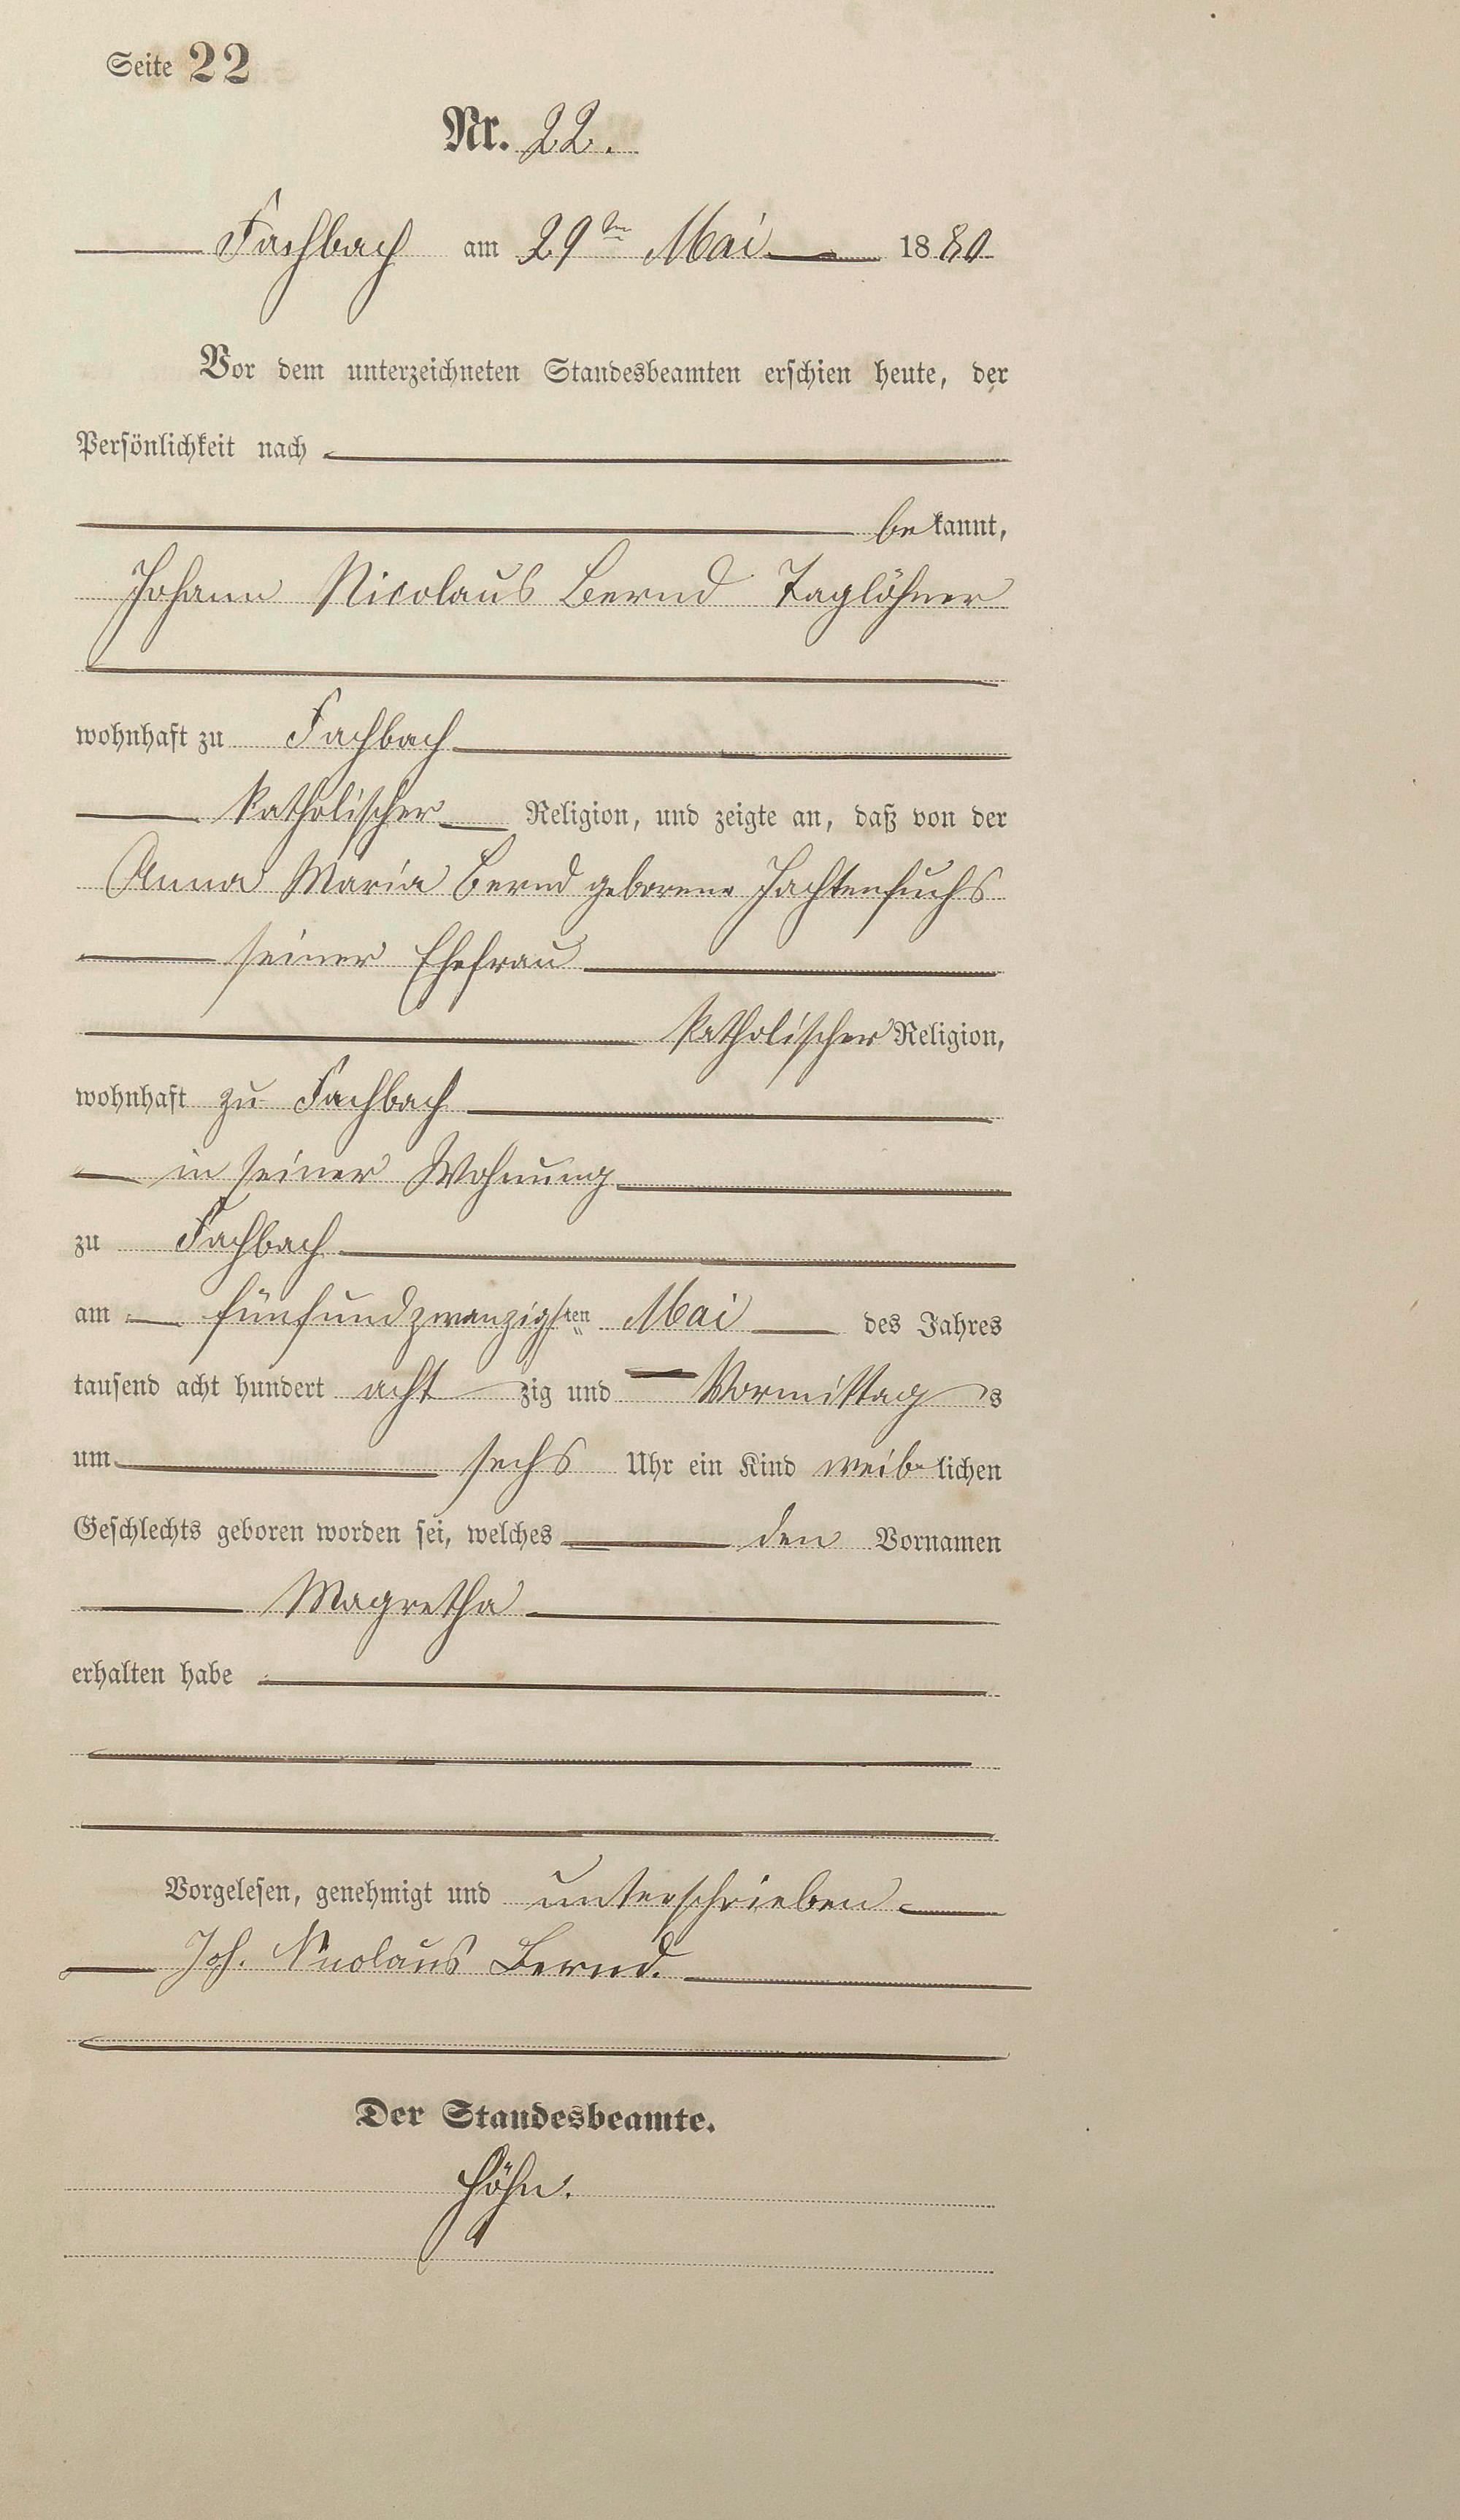 Seite 22
Nr. 22.
Fachbach am 29ten Mai 1880
Vor dem unterzeichneten Standesbeamten erschien heute, der
Persönlichkeit nach
bekannt,
Johann Nicolaus Bernd Taglöhner
wohnhaft zu Fachbach
katholischer Religion, und zeigte an, daß von der
Anna Maria Bernd geborene Jachtenfuchs
seiner Ehefrau
katholischer Religion,
wohnhaft zu Fachbach
in seiner Wohnung
zu Fachbach
am fünfundzwanzigsten Mai des Jahres
tausend acht hundert achtzig und Vormittags
um sechs Uhr ein Kind weiblichen
Geschlechts geboren worden sei, welches den Vornamen
Magretha
erhalten habe
Vorgelesen, genehmigt und unterschrieben
Joh. Nicolaus Bernd.
Der Standesbeamte.
Höhn.